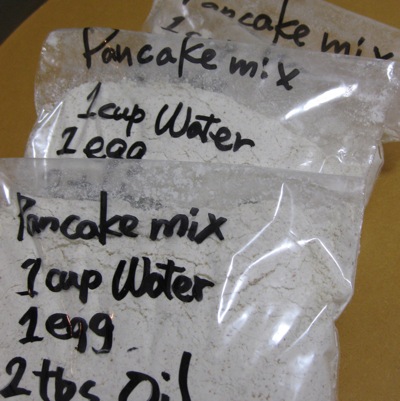 Pancake mix
1
Pancake mix
1 cup Water
1 egg
Pancake mix
1 cup Water
1 egg
2 tbs Oil